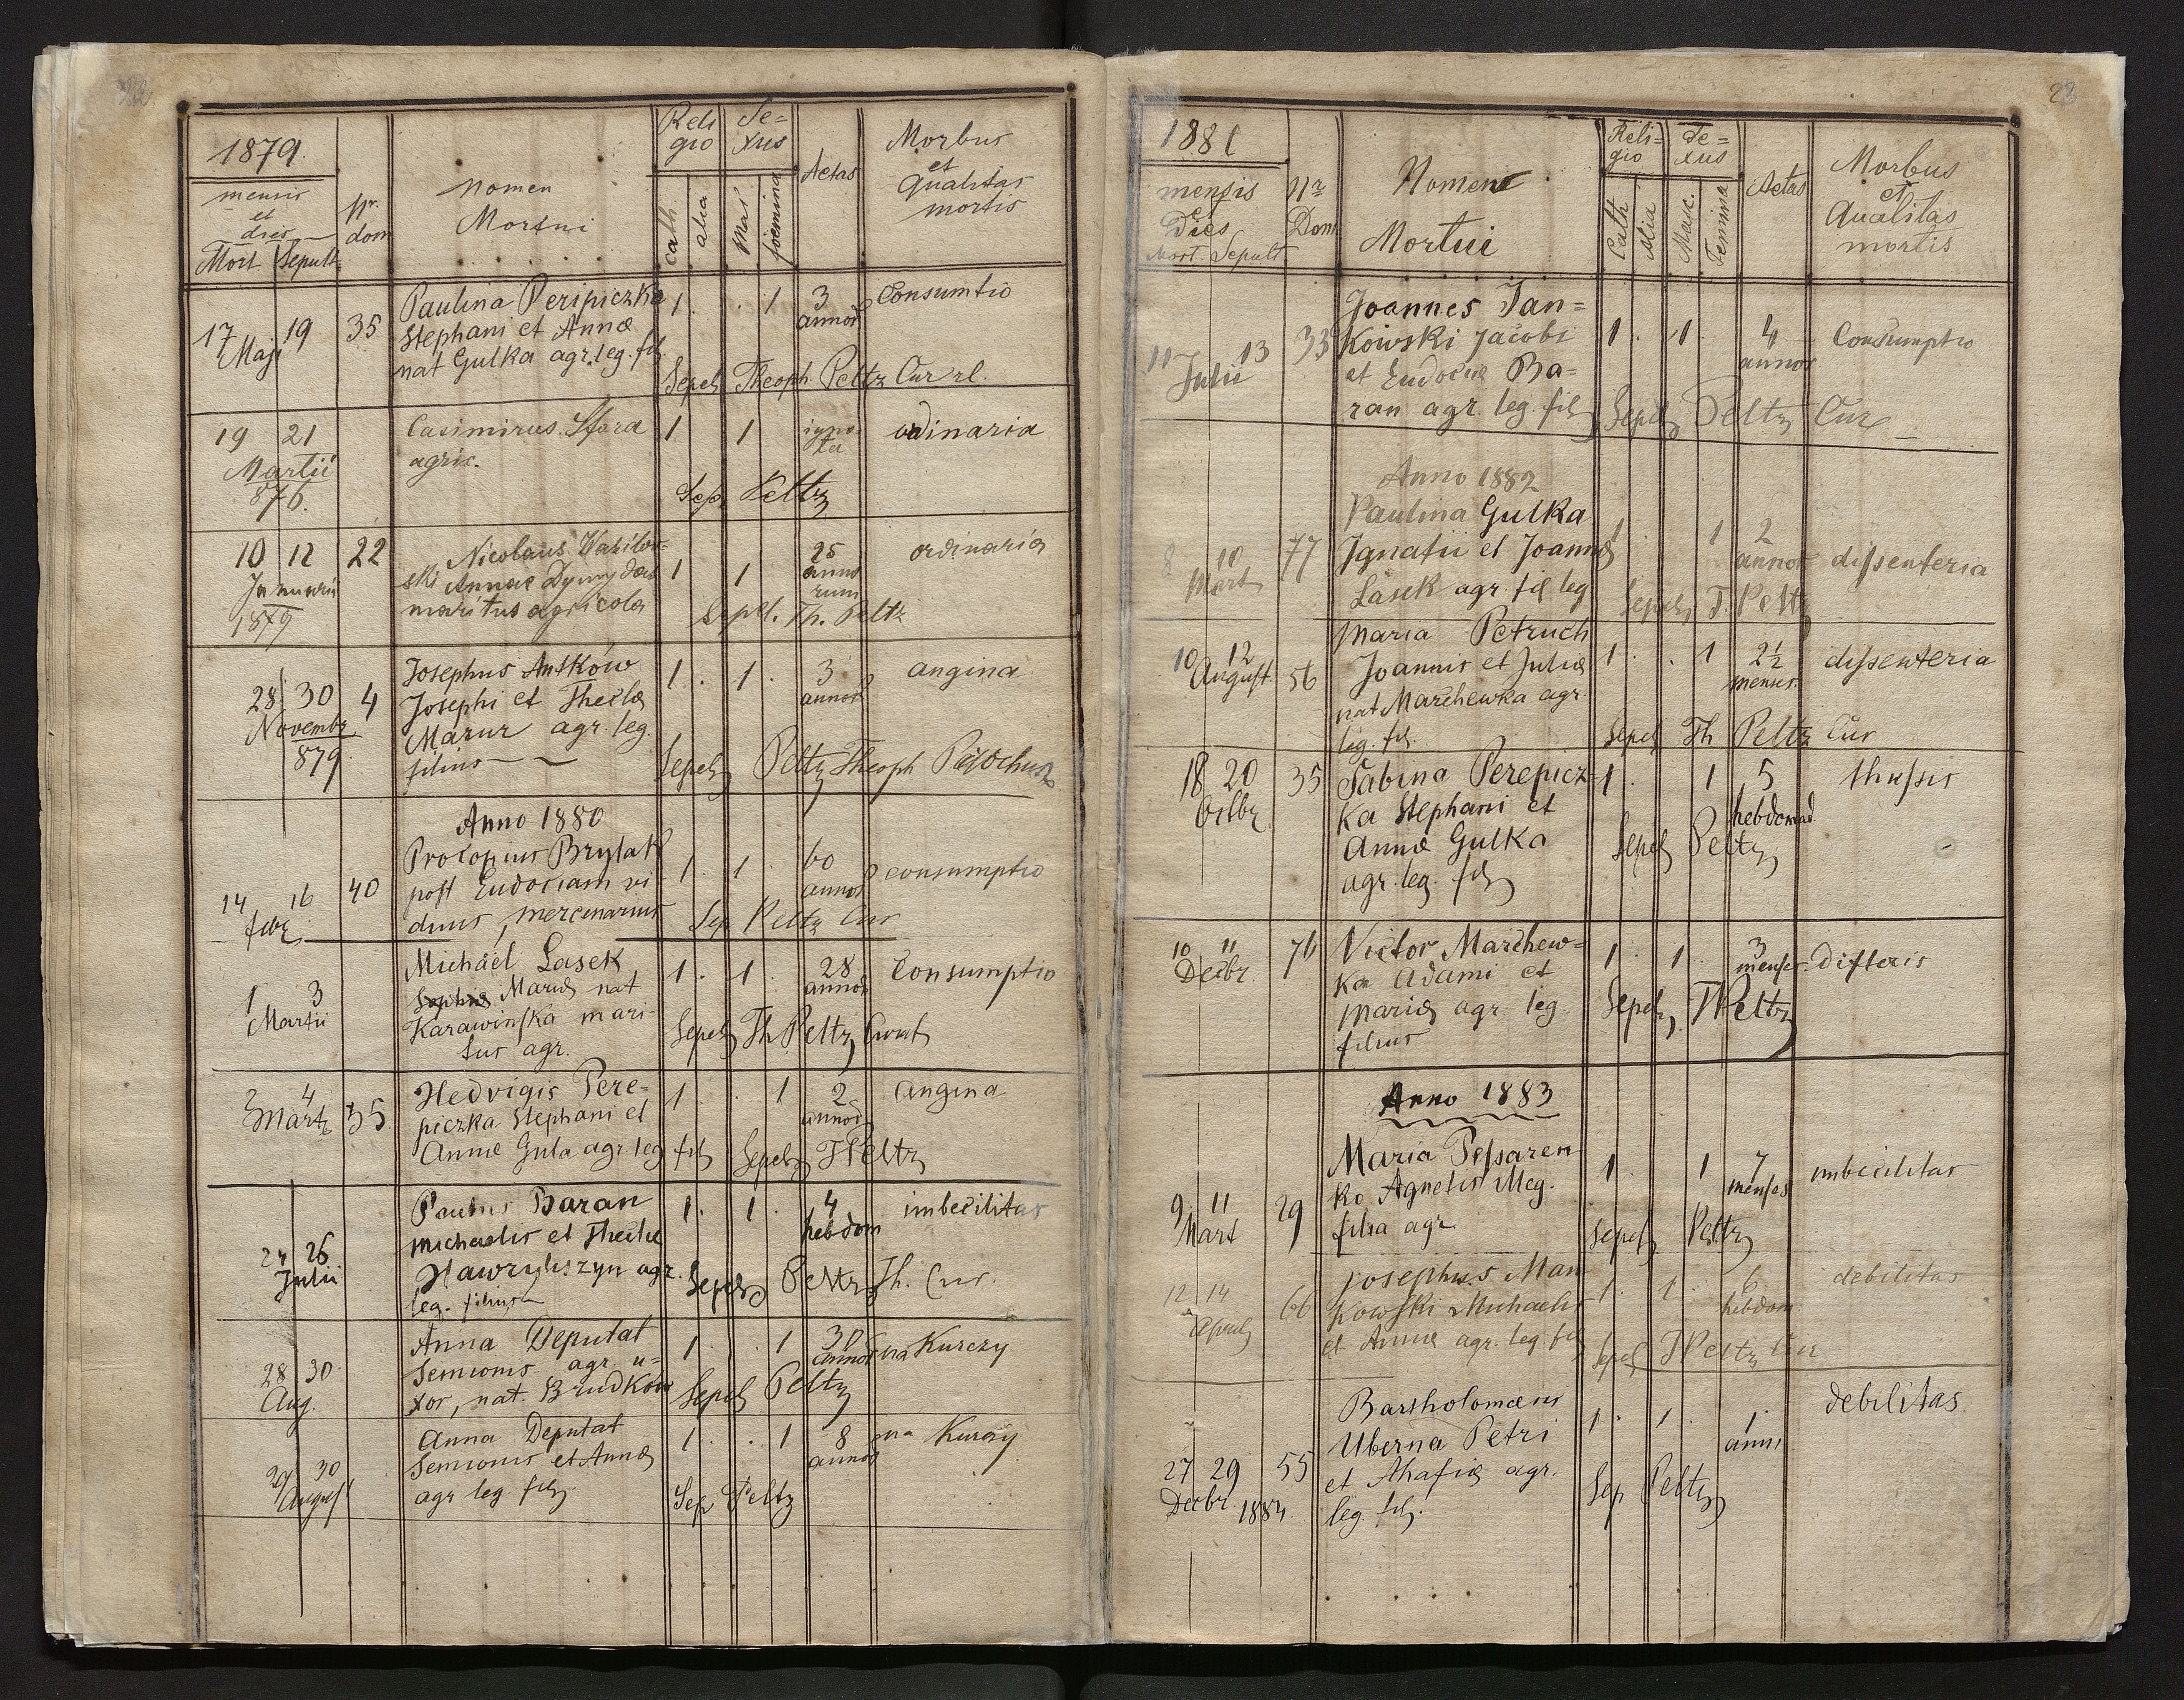 22
1879.
mensis
et
dies
Mort Sepult
Nr.
dom
Nomen
Mortui
Reli
gio
cath.
alia
Se=
xus
Mas
foemina
Aetas
Morbus
et
Qualitas
mortis
17 19
Maji
35
Paulina Peripiczka
Stephani et Annæ
nat Gulka agr. leg. fil.
1 . . 1
3
annor
Consumtio
Sepel Theoph. Peltz Cur rl.
19 21
Martii
876.
Casimirus Sfora
agric.
1 1
igno
ta
ordinaria
Sep Peltz
10 12
Januarii
1879
22
Nicolaus Wasilow=
ski Annae Dymydas
maritus agricola
1 1
25
anno
rum
ordinaria
Sepel. Th. Peltz
28 30
Novembr
879
4
Josephus Antków
Josephi et Theclæ
Mazur agr. leg.
filius
1 . 1 .
3
annor
angina
Sepel Peltz Theoph
Anno 1880
14 16
febr
40
Procopius Brylak
post Eudociam vi
duus, mercenarius
1 . 1 .
60
annor
consumptio
Sep Peltz Cur
1 3
Martii
Michael Lasek
Sophiæ Mariæ nat
Karawinska mari-
tus agr.
1 . 1 .
28
annor
Consumptio
Sepel Th Peltz Curat
2 4
Mart
35
Hedvigis Pere-
piczka Stephani et
Annæ Gula agr leg fil
1 . . 1
2
annor
angina
Sepel T Peltz
24 26
Julii
Paulus Baran
Michaelis et Theclæ
Hawryliszyn agr.
leg. filius
1 . 1 .
4
hebdom
imbecilitas
Sepel Peltz Th. Cur.
28 30
Aug.
Anna Deputat
Semionis agr. u=
xor, nat. Brudków
1 . . 1
30
annor
na Kurczy
Sepel Peltz
29 30
August
Anna Deputat
Semionis et Annæ
agr leg fil
1 . . 1
8
annor
na Kurczy
Sep Peltz
23
1881
mensis
et
Dies
Mort. Sepult
Nr
Dom
Nomen
Mortui
Reli=
gio
Cath
Alia
Se=
xus
Masc.
Feminina
Aetas
Morbus
et
Qualitas
mortis
11 13
Julii
33
Joannes Jan=
kowski Jacobi
et Eudociæ Ba=
ran agr. leg. fil
1 . 1 .
4
annor
Consumptio
Sepel Peltz Cur
Anno 1882
8 10
Mart
77
Paulina Gulka
Ignatii et Joannæ
Lasek agr. fil leg
1 . 1
2
annor
dissenteria
Sepel T. Peltz
10 12
August.
56
Maria Petruch
Joannis et Juliæ
nat Marchewka agr.
leg. fil.
1 . . 1
2½
menses.
dissenteria
Sepel Th Peltz Cur
18 20
Octbr
35
Sabina Perepicz
ka Stephani et
Annæ Gulka
agr. leg. fil
1 . 1
5
hebdomad.
thussis
Sepel Peltz
10 11
Decbr.
76
Victor Marchew=
ka Adami et
Mariæ agr leg.
filius
1 . 1 .
3
menses.
difteris
Sepel. T Peltz
Anno 1883
9 11
Mart
29
Maria Pessaren
ko Agnetis Meg.
filia agr.
1 . 1
7
menses
imbecilitas
Sepel Peltz
12 14
April
66
Josephus Man
kowski Michaelis
et Annæ agr. leg. fil
1 . 1 .
6
hebdom.
debilitas
Sepel T Peltz Cur
27 29
Decbr. 1884.
55
Bartholomæus
Uberna Petri
et Ahafiæ agr.
leg. fil.
1 . 1 .
1
anni
debilitas
Sep Peltz